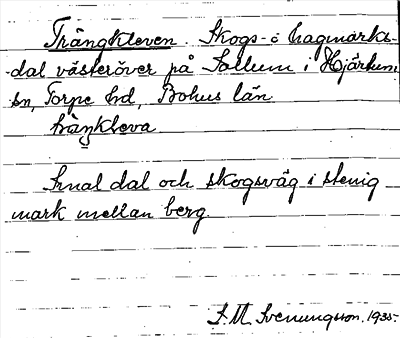 Trångkleven. Skogs- o hagmarks-
dal västeröver på Sollum i Hjärtum
sn, Torpe hd, Bohus län.
trångkleva
Smal dal och skogsväg i stenig
mark mellan berg.
S. M. Svenungsson. 1935.